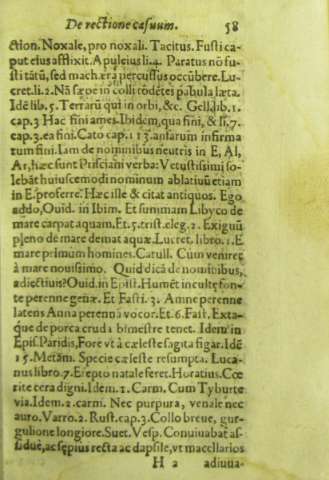 De rectione casuum. 58
ction. Noxale, pro noxali. Tacitus. Fusti ca-
put eius afflixit. Apuleius li.4. Paratus nõ fu-
sti tãtũ, sed machæra percussus occũbere. Lu-
cret. li.2. Nã sæpe in colli tõdẽtes pabula læta.
Idẽ lib.5. Terrarũ qui in orbi, &c. Gell. lib.1.
cap.3 Hac fini ames. Ibidem, qua fini, & li.7.
cap.3. ea fini. Cato cap.113. ansarum infirma
tum fini. Iam de nominibus neutris in E, Al,
Ar, hæc sunt Prisciani verba: Vetustissimi so-
lebãt huiuscemodi nominum ablatiuũ etiam
in E. proferre. Hæc ille & citat antiquos. Ego
addo, Ouid. in Ibim. Et summam Libyco de
mare carpat aquam. Et 5. trist. eleg.2. Exiguũ
pleno de mare demat aquæ. Lucret. libro.1. E
mare primum homines. Catull. Cum veniret
à mare nouissimo. Quid dicã de nominibus,
adiectiuis? Ouid. in Epist. Humẽt incultę fon-
te perenne genæ. Et Fasti.3. Amne perenne
latens Anna perennà vocor. Et.6. Fast. Exta-
que de porca cruda bimestre tenet. Idem in
Epis. Paridis, Fore vt à cæleste sagitta figar. Idẽ
15. Metãm. Specie cæleste resumpta. Luca-
nus libro.7. Erepto natale feret. Horatius. Cœ
rite cera digni. Idem.1. Carm. Cum Tyburte
via. Idem.2. carm. Nec purpura, venale nec
auro. Varro.2. Rust. cap.3. Collo breue, gur-
gulione longiore. Suet. Vesp. Conuiuabat as-
siduè, ac sępius recta ac dapsile, vt macellarios
H 2 adiuua-